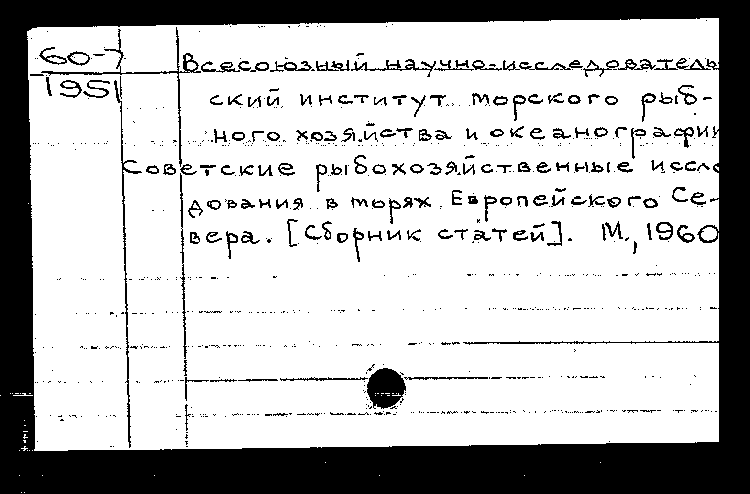 60-7
1951
Всесоюзный научно-исследователь
ский институт морского рыб-
ного хозяйства и океанографии
Советские рыбохозяйственные иссле
дования в морях Европейского Се-
вера. [Сборник статей]. М., 1960